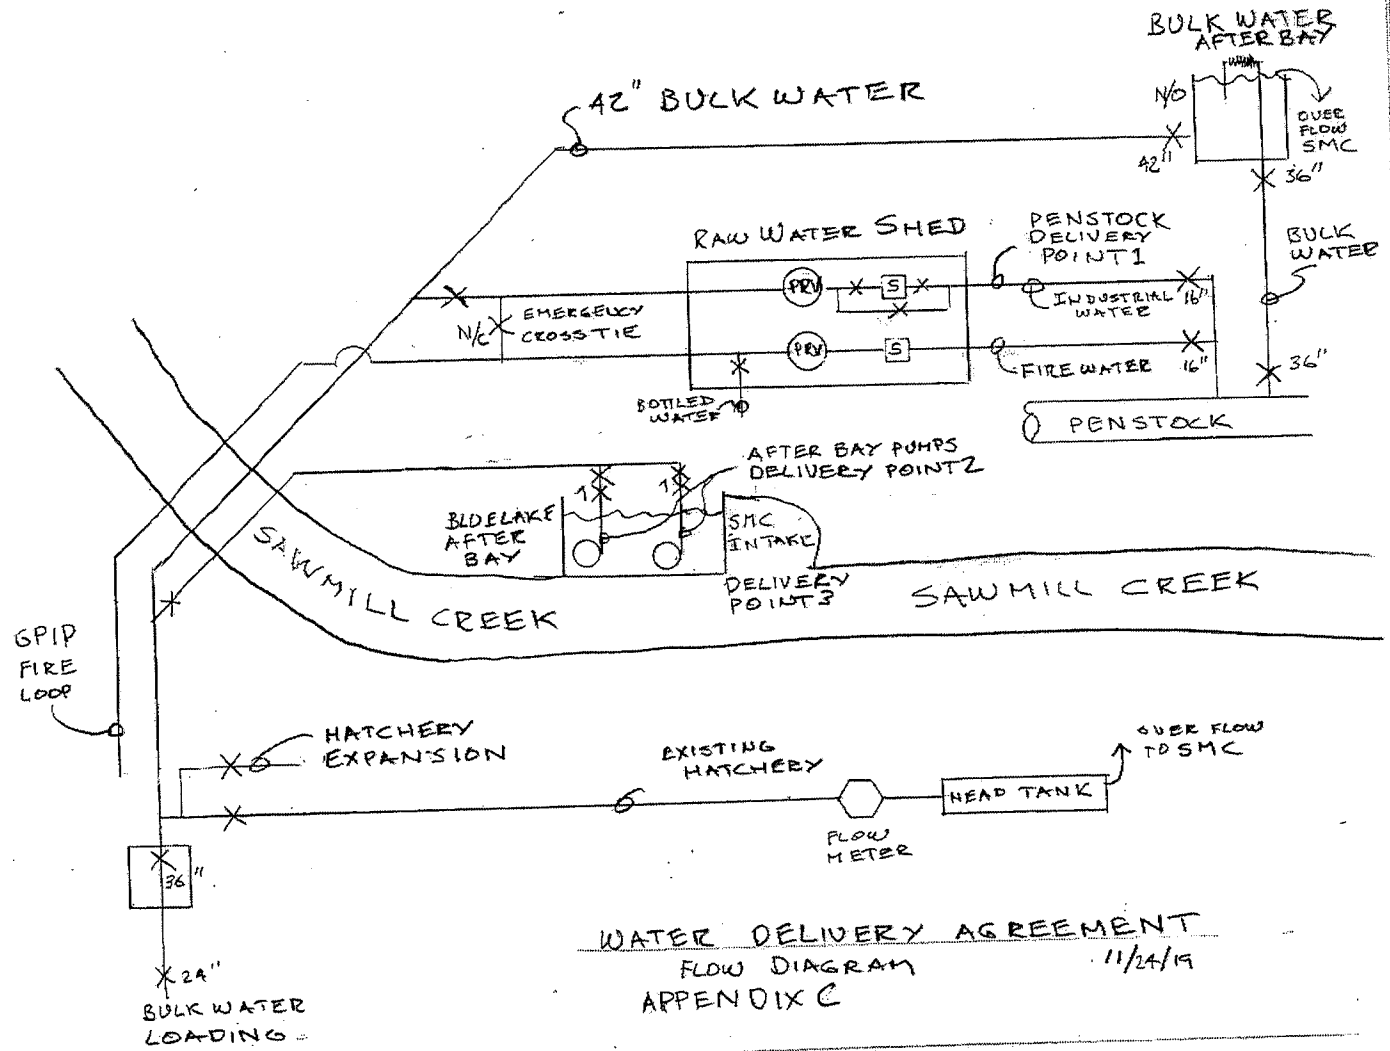 BULK WATER
AFTER BAY
42" BULK WATER
N/O
OVER
FLOW
SMC
42"
36"
RAW WATER SHED
PENSTOCK
DELIVERY
POINT 1
BULK
WATER
PRV
S
INDUSTRIAL
WATER
16"
N/C
EMERGENCY
CROSS TIE
PRV
S
FIRE WATER
16"
36"
BOTTLED
WATER
PENSTOCK
AFTER BAY PUMPS
DELIVERY POINT 2
BLUELAKE
AFTER
BAY
SMC
INTAKE
DELIVERY
POINT 3
SAWMILL CREEK
SAWMILL CREEK
GPIP
FIRE
LOOP
HATCHERY
EXPANSION
EXISTING
HATCHERY
OVER FLOW
TO SMC
HEAD TANK
FLOW
METER
36"
24"
BULK WATER
LOADING
WATER DELIVERY AGREEMENT
FLOW DIAGRAM
11/24/19
APPENDIX C